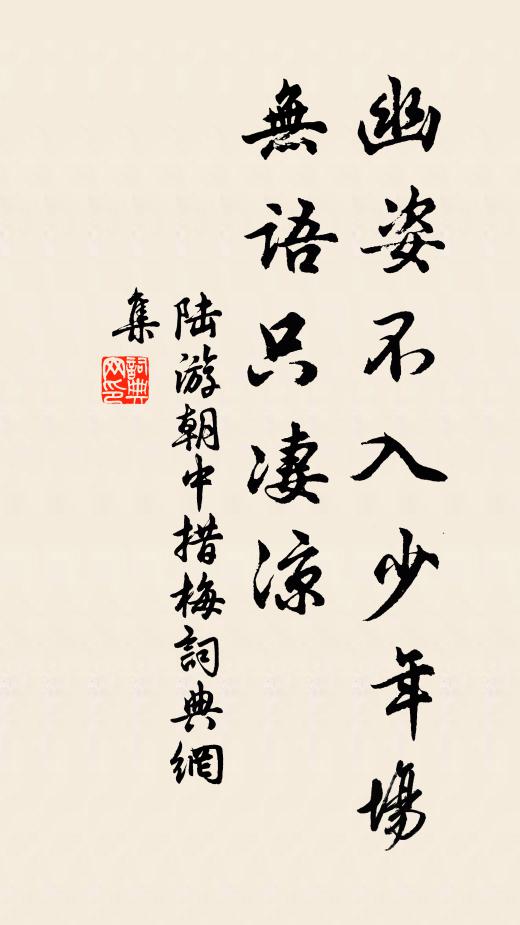 幽姿不入少年場
無語只凄涼
陸游朝中措梅詞典網
集
詞典
网印